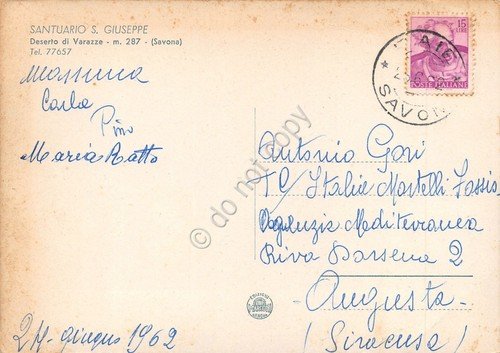 SANTUARIO S. GIUSEPPE
Deserto di Varazze - m. 287 - (Savona)
Tel. 77657
Massima
Carla
Pino
Maria Ratto
24 - giugno 1962
15
LIRE
POSTE ITALIANE
SAVONA
Antonio Gori
TC/ Italia Martelli Fassio
Agenzia Mediterranea
Riva Darsena 2
Augusta
(Siracusa)
do not copy